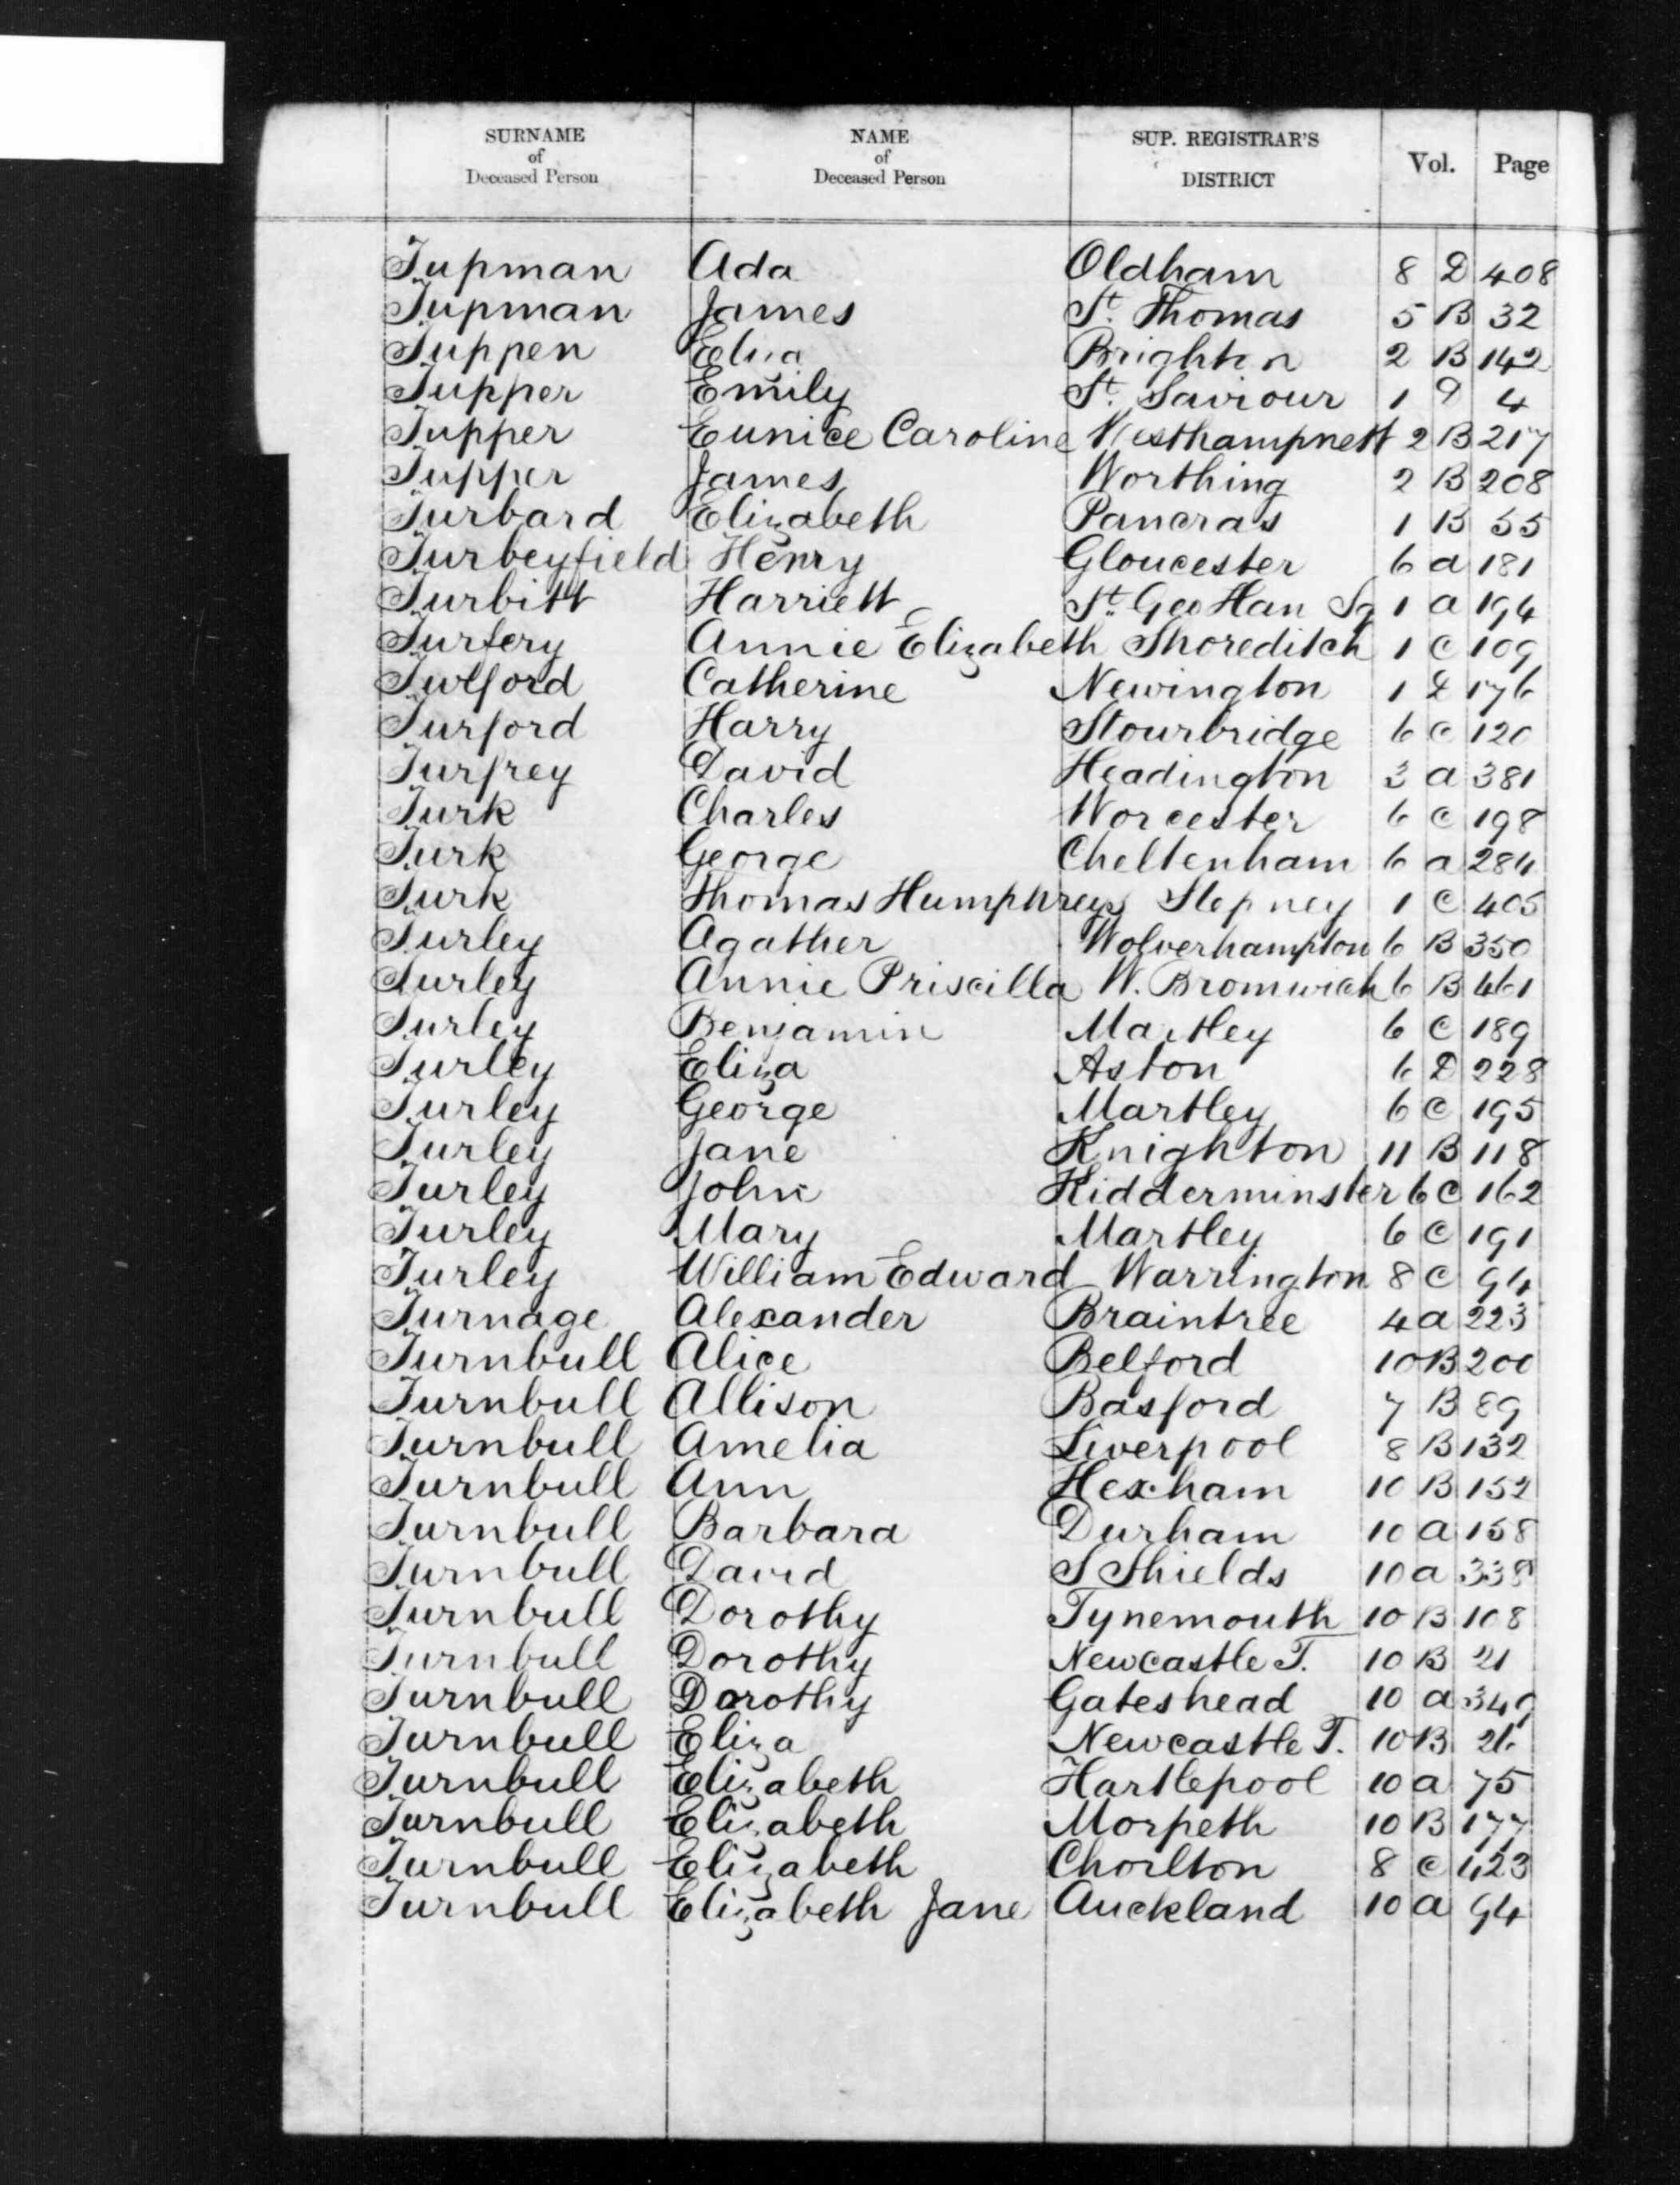 SURNAME of Deceased Person NAME of Deceased Person SUP. REGISTRAR'S DISTRICT Vol. Page
Tupman Ada Oldham 8 D 408
Tupman James St. Thomas 5 B 32
Tuppen Eliza Brighton 2 B 142
Tupper Emily St. Saviour 1 4
Tupper Eunice Caroline Westhampnett 2 B 217
Tupper James Worthing 2 B 208
Turbard Elizabeth Pancras 1 B 55
Turbeyfield Henry Gloucester 6 a 181
Turbitt Harriett St. Geo Han Sq 1 a 194
Turfery Annie Elizabeth Shoreditch 1 C 109
Catherine Newington 1 D 176
Turford Harry Stourbridge 6 C 120
Turfrey David Headington 3 a 381
Turk Charles Worcester 6 C 198
Turk George Cheltenham 6 a 284
Turk Thomas Humphreys Stepney 1 C 405
Turley Agather Wolverhampton 6 B 350
Turley Annie Priscilla W. Bromwich 6 B 461
Turley Benjamin Martley 6 C 189
Turley Eliza Aston 6 D 228
Turley George Martley 6 C 195
Turley Jane Knighton 11 B 118
Turley John Kidderminster 6 C 162
Turley Mary Martley 6 C 191
Turley William Edward Warrington 8 C 94
Turnage Alexander Braintree 4 a 223
Turnbull Alice Belford 10 B 200
Turnbull Allison Basford 7 B 89
Turnbull Amelia Liverpool 8 B 132
Turnbull Ann Hexham 10 B 152
Turnbull Barbara Durham 10 a 158
Turnbull David S Shields 10 a 338
Turnbull Dorothy Tynemouth 10 B 108
Turnbull Dorothy Newcastle T. 10 B 21
Turnbull Dorothy Gateshead 10 a 349
Turnbull Eliza Newcastle T. 10 B 26
Turnbull Elizabeth Hartlepool 10 a 75
Turnbull Elizabeth Morpeth 10 B 177
Turnbull Elizabeth Chorlton 8 C 423
Turnbull Elizabeth Jane Auckland 10 a 94